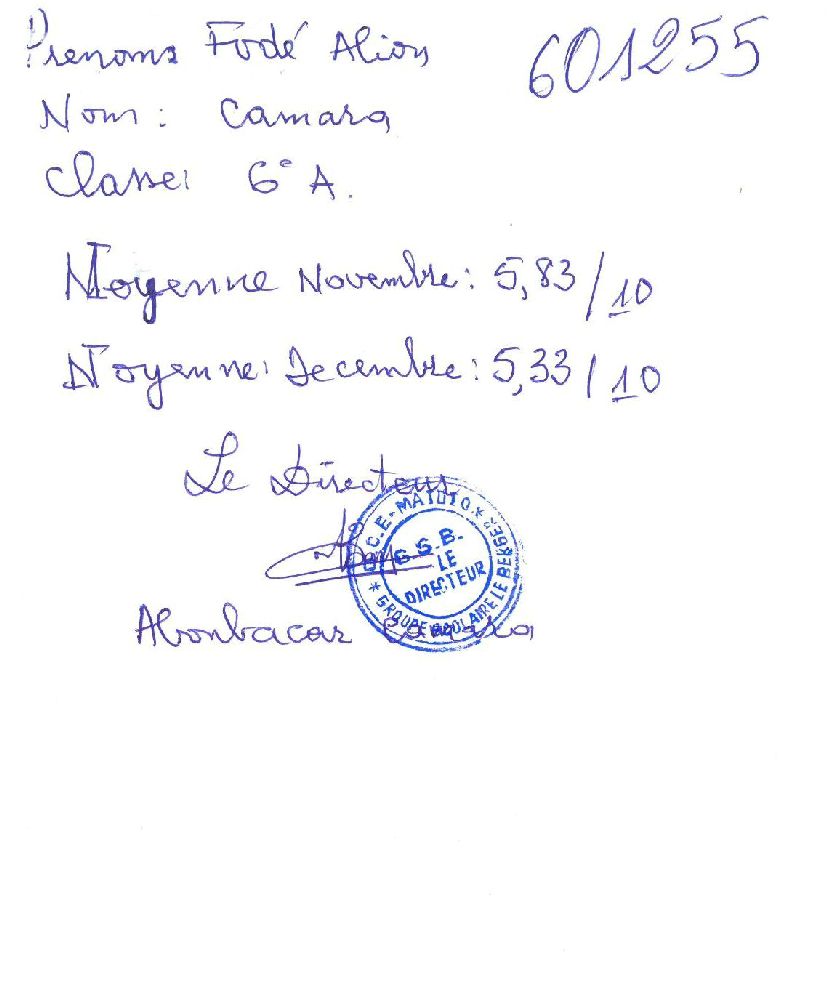 Prenoms Fodé Aliou
601255
Nom : Camara
Classe: 6° A.
Moyenne Novembre: 5,83/10
Moyenne: Decembre: 5,33/10
Le Directeur
C.E-MATOTO * GROUPE SCOLAIRE LE BERGER *
G.S.B.
LE
DIRECTEUR
Aboubacar Camara